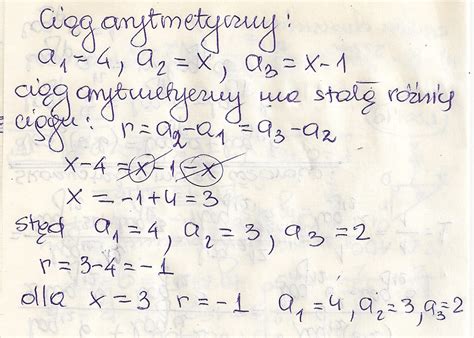 Ciąg arytmetyczny:
a₁=4, a₂=x, a₃=x-1
ciąg arytmetyczny ma stałą różnię
ciągu: r=a₂-a₁=a₃-a₂
x-4=x-1-x
x=-1+4=3
stąd a₁=4, a₂=3, a₃=2
r=3-4=-1
dla x=3 r=-1 a₁=4, a₂=3, a₃=2